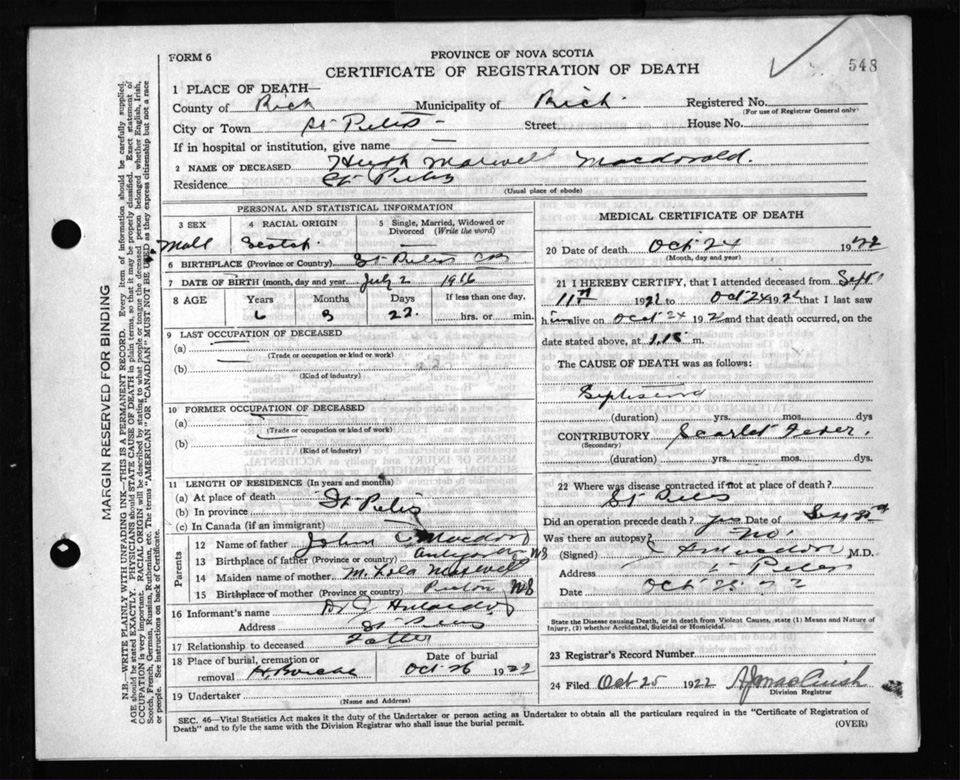 FORM 6
PROVINCE OF NOVA SCOTIA
CERTIFICATE OF REGISTRATION OF DEATH
548
1 PLACE OF DEATH—
County of Rich Municipality of Rich. Registered No.
(For use of Registrar General only)
City or Town St Peters Street House No.
If in hospital or institution, give name
2 NAME OF DECEASED Hugh Maxwell Macdonald.
Residence St Peters
(Usual place of abode)
PERSONAL AND STATISTICAL INFORMATION
3 SEX 4 RACIAL ORIGIN 5 Single, Married, Widowed or Divorced (Write the word)
Male Scotch
6 BIRTHPLACE (Province or Country) St Peters CB
7 DATE OF BIRTH (month, day and year) July 2 1916
8 AGE Years Months Days If less than one day,
6 3 22 hrs. or min.
9 LAST OCCUPATION OF DECEASED
(a)
(Trade or occupation or kind or work)
(b)
(Kind of industry)
10 FORMER OCCUPATION OF DECEASED
(a)
(Trade or occupation or kind of work)
(b)
(Kind of industry)
11 LENGTH OF RESIDENCE (In years and months)
(a) At place of death
(b) In province St Peters
(c) In Canada (if an immigrant)
Parents
12 Name of father John
13 Birthplace of father (Province or country) NS
14 Maiden name of mother M. Lola Maxwell
15 Birthplace of mother (Province or country) Pictou NS
16 Informant's name Dr J
Address St Peters
17 Relationship to deceased Father
18 Place of burial, cremation or removal Date of burial
Oct 26 1922
19 Undertaker
(Name and Address)
MEDICAL CERTIFICATE OF DEATH
20 Date of death Oct 24 1922
(Month, day and year)
21 I HEREBY CERTIFY, that I attended deceased from Sept
11th 1922 to Oct 24 1922 that I last saw
him alive on Oct 24 192 and that death occurred, on
date stated above, at 1.15 m.
The CAUSE OF DEATH was as follows:
(duration) yrs. mos. dys
CONTRIBUTORY Scarlet Fever.
(Secondary)
(duration) yrs. mos. dys.
22 Where was disease contracted if not at place of death?
St Peters
Did an operation precede death? yes Date of Sept
Was there an autopsy? No.
(Signed) M.D.
Address St Peters
Date Oct 25 22
State the Disease causing Death, or in death from Violent Causes, state (1) Means and Nature of Injury, (2) whether Accidental, Suicidal or Homicidal.
23 Registrar's Record Number
24 Filed Oct 25 1922
Division Registrar
SEC. 46—Vital Statistics Act makes it the duty of the Undertaker or person acting as Undertaker to obtain all the particulars required in the "Certificate of Registration of
Death" and to fyle the same with the Division Registrar who shall issue the burial permit.
(OVER)
MARGIN RESERVED FOR BINDING
N.B.—WRITE PLAINLY WITH UNFADING INK—THIS IS A PERMANENT RECORD. Every item of information should be carefully supplied.
AGE should be stated EXACTLY. PHYSICIANS should STATE CAUSE OF DEATH in plain terms, so that it may be properly classified. Exact statement of
OCCUPATION is very important. RACIAL ORIGIN will be described by stating to what people or tongue the deceased person belonged whether English, Irish,
Scotch, French, German, Russian, Ruthenian, etc. The terms "AMERICAN" OR "CANADIAN" MUST NOT BE USED as they express citizenship but not a race
or people. See instructions on back of Certificate.